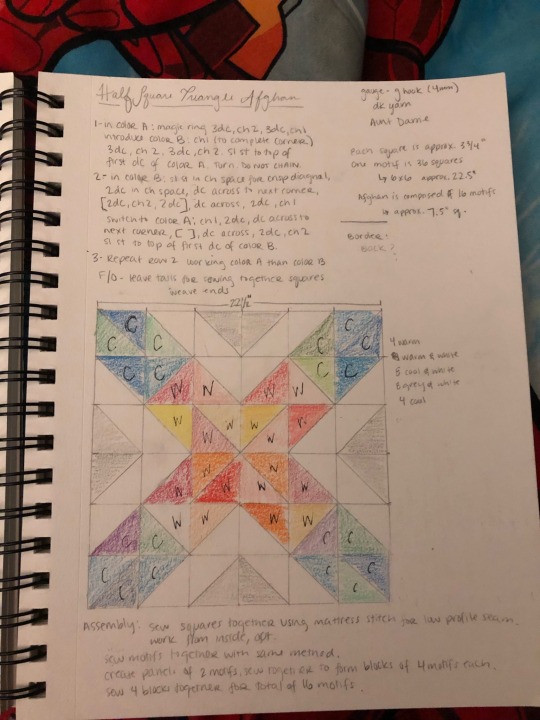 Half Square Triangle Afghan
gauge - g hook (4mm)
dk yarn
Aunt Dame
1- in color A: magic ring 3dc, ch2, 3dc, ch1
introduce color B: ch1 (to complete corner)
3dc, ch2, 3dc, ch2. sl st to top of
first dc of color A. turn. DO NOT CHAIN.
2- in color B: sl st in ch space for crisp diagonal,
2dc in ch space, dc across to next corner,
[2dc, ch2, 2dc], dc across, 2dc, ch1
switch to color A: ch1, 2dc, dc across to
next corner, [ ], dc across, 2dc, ch2
sl st to top of first dc of color B.
3- Repeat row 2 working color A than color B
F/O- leave tails for sewing together squares
weave ends
Each square is approx. 3 3/4"
one motif is 36 squares
↳ 6x6 approx. 22.5"
Afghan is composed of 16 motifs
↳ approx. 7.5' sq.
Border?
BOCK?
22 1/2"
C C C C
C C C C
C C C C
W N W W
W W W W r.
W W
W W
W W W W
W W W W
C C C C
C C C C
C C
4 warm
warm & white
5 cool & white
8 grey & white
4 cool
Assembly: sew squares together using mattress stitch for low profile seam.
work from inside, opt.
sew motifs together with same method.
create panels of 2 motifs, sew together to form blocks of 4 motifs each.
sew 4 blocks together for total of 16 motifs.